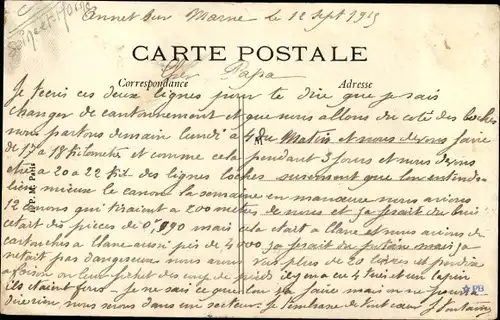 Seine et Marne
Annet sur Marne le 12 Sept 1915
CARTE POSTALE
Correspondance
Adresse
Cher Papa
Je t'ecris ces deux lignes pour te dire que je vais
changer de cantonnement et que nous allons du coté des boches
nous partons demain lundi a 4 du Matin et nous devons faire
de 17 a 18 Kilometres et comme cela pendant 3 jours et nous devons
etre a 20 a 22 Kil des lignes boches surement que l'on entendra
bien mieux le canon la semaine en manoeuvre nous avions
12 canons qui tiraient a 200 metres de nous et sa fesait du bruit
cetait des pieces de 0,90 mais cela etait a blanc et nous avions des
cartouches a blanc aussi pres de 4000 sa fesait du potain mais sa
netait pas dangereux nous avons vu plus de 20 lievres et perdrix
a foison on leur fichait des coup de pieds il y en a eu 4 tués et un lapin
ils etaient fins je ne sais ce que l'on va faire mais on ne pourra
dire rien nous nous dans un secteur. Je t'embrasse de tout coeur
P. M. Paris
PB